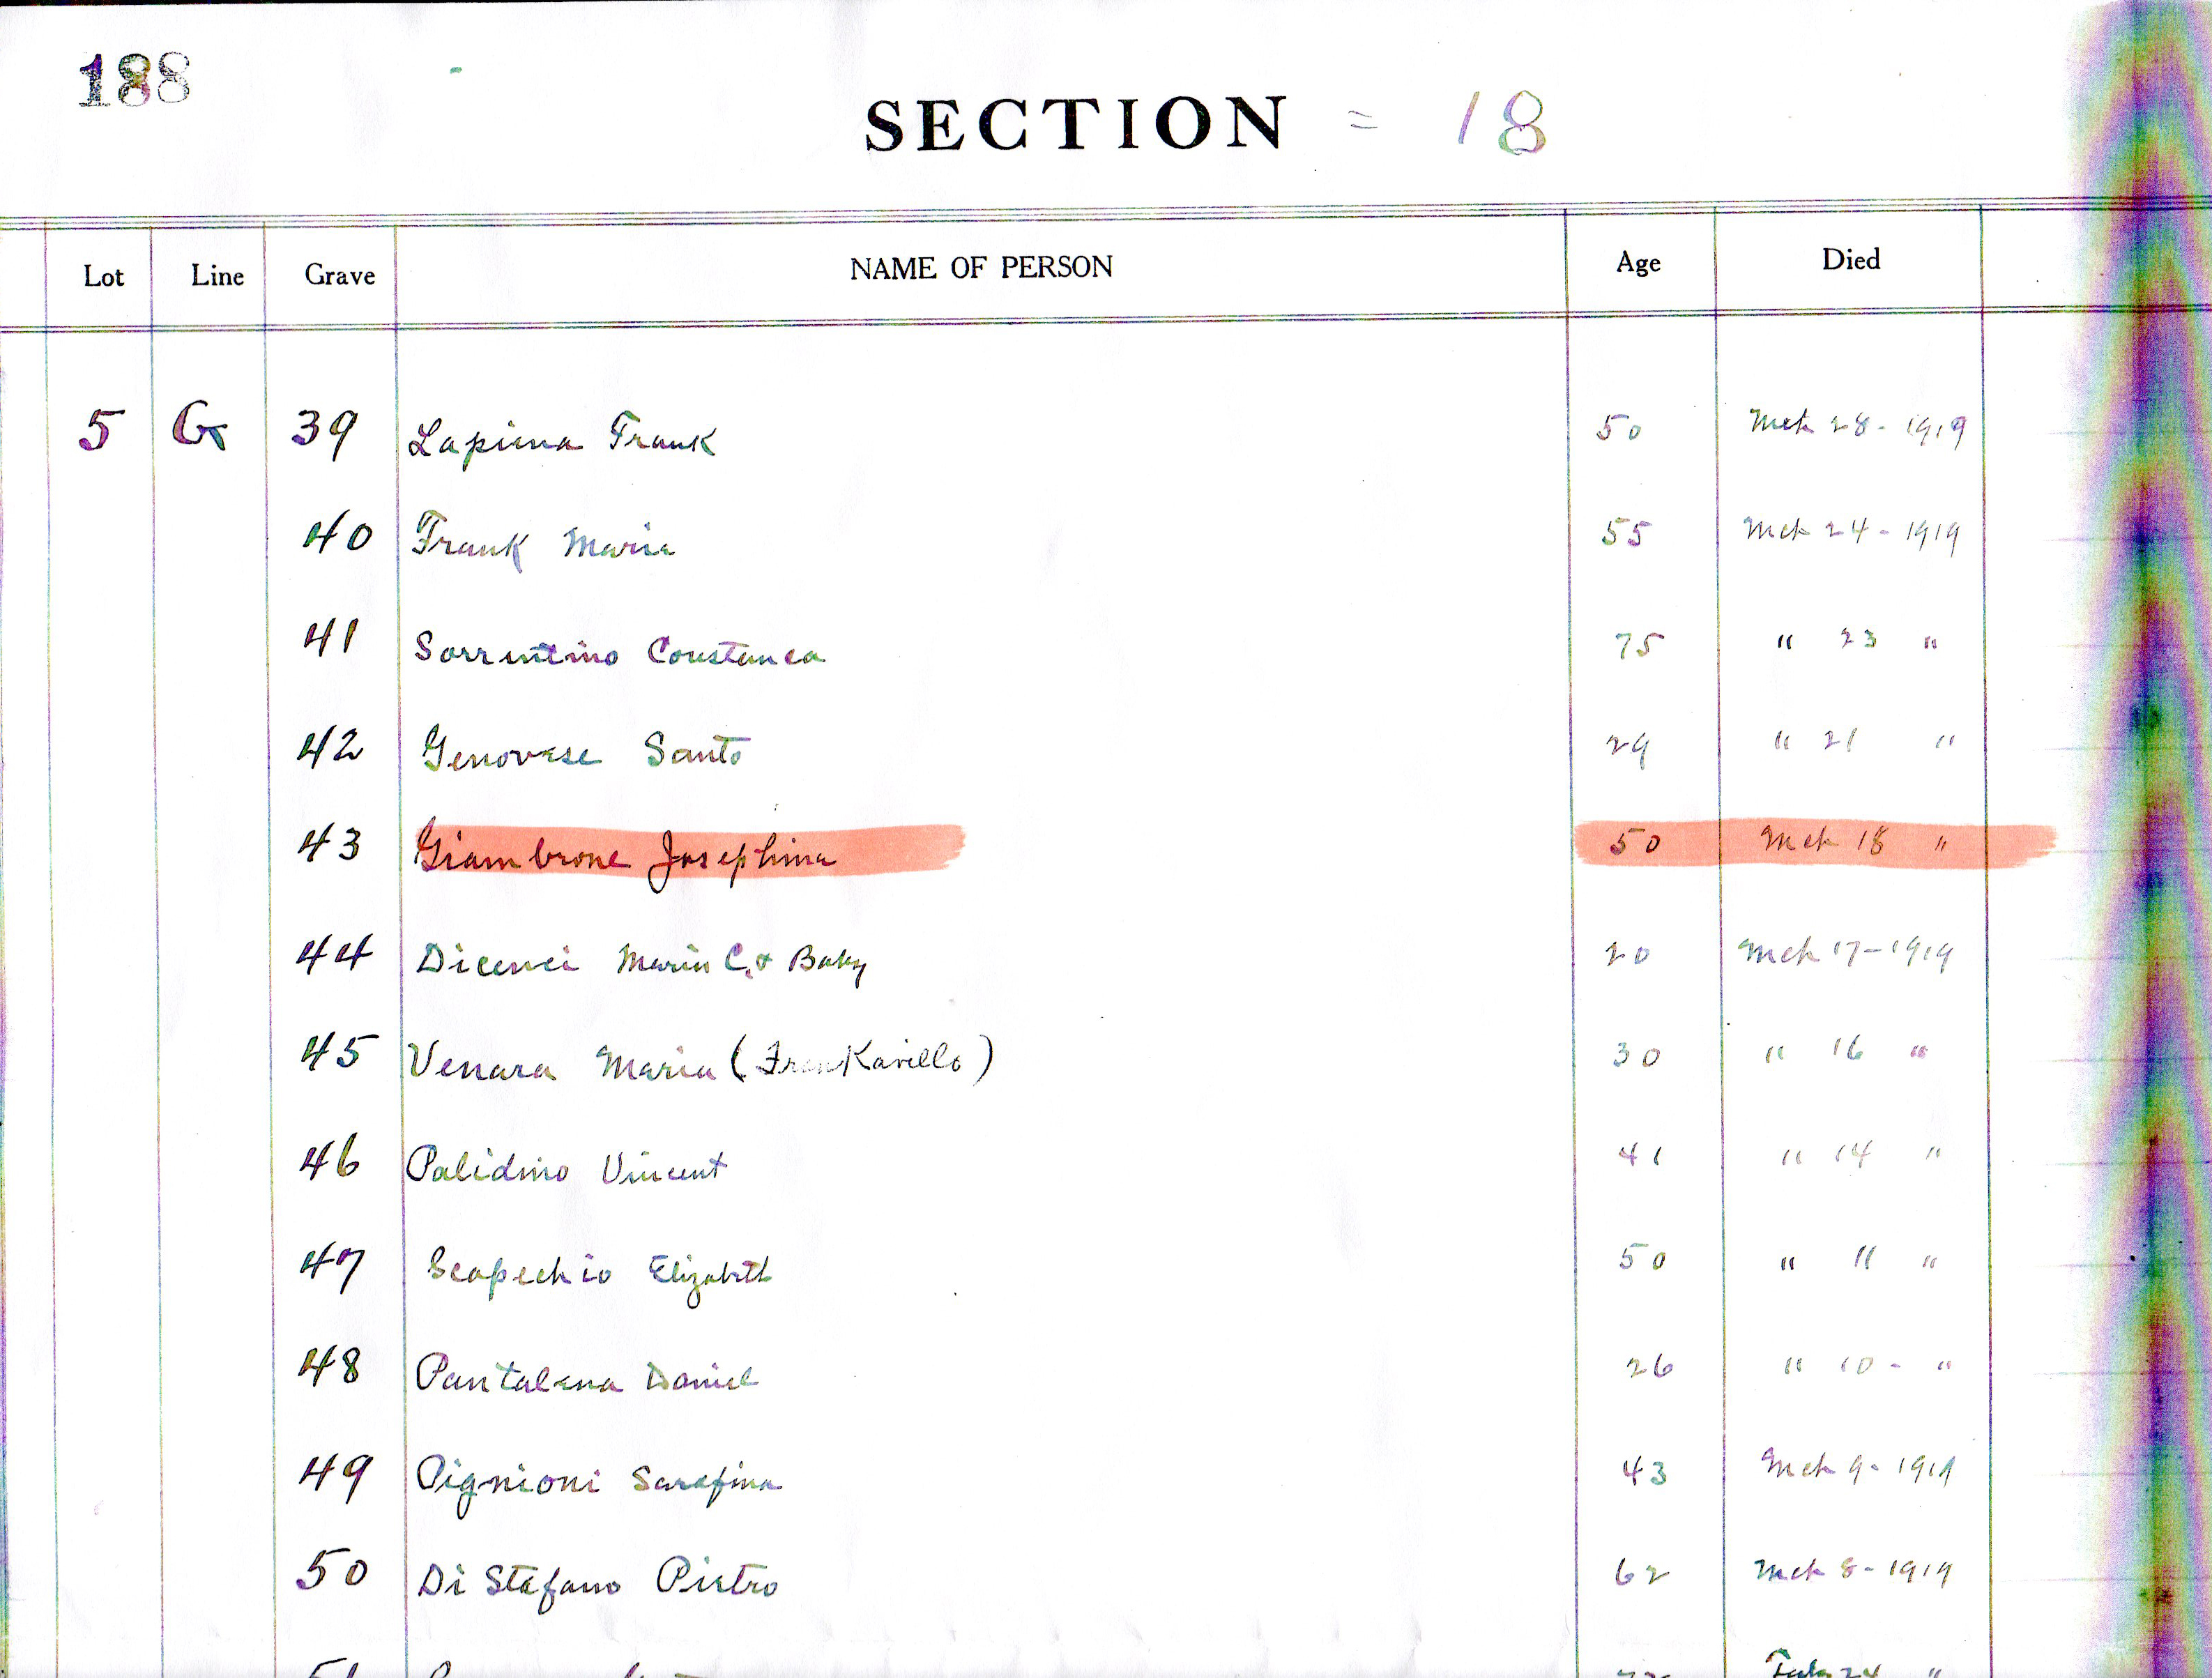 188
SECTION = 18
Lot Line Grave NAME OF PERSON Age Died
5 G 39 Lapiana Frank 50 Mch 28 - 1919
40 Frank Maria 55 Mch 24 - 1919
41 Sorrentino Constanca 75 " 23 "
42 Genovese Santo 29 " 21 "
43 Giambrone Josephina 50 Mch 18 "
44 Dicenci Maria C. & Baby 20 Mch 17 - 1919
45 Venara Maria ( ) 30 " 16 "
46 Palidino Vincent 41 " 14 "
47 Scapechio Elizabeth 50 " 11 "
48 Pantalena Daniel 26 " 10 - "
49 Pignioni Sarafina 43 Mch 9 - 1919
50 Di Stefano Pietro 62 Mch 8 - 1919